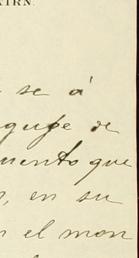 AIRN.
se á
quipe de
mento que
, en su
n el mon